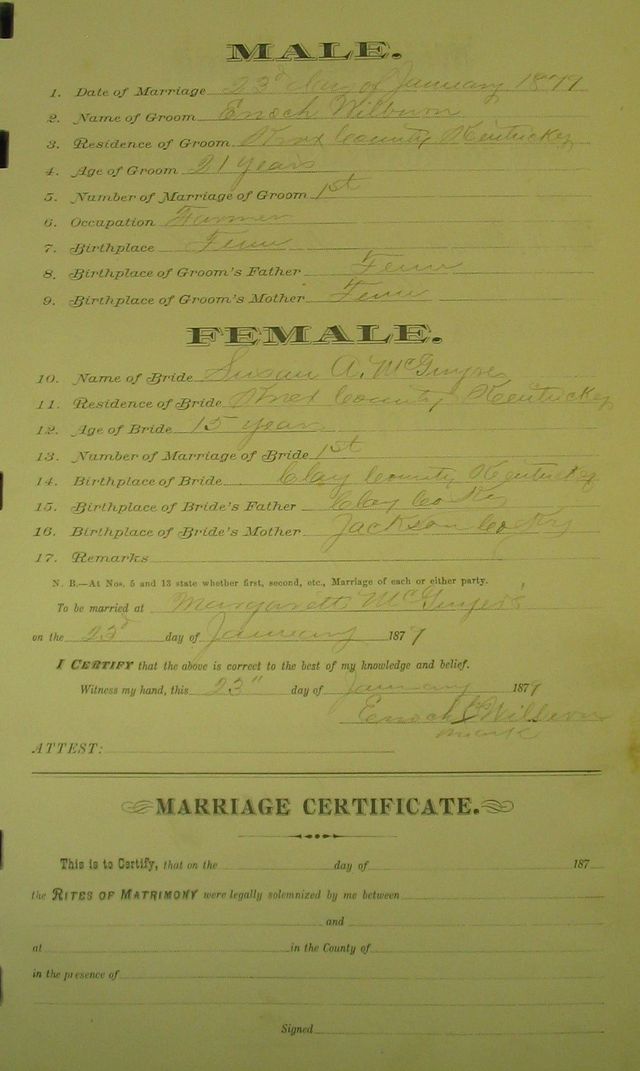 MALE.
1. Date of Marriage 23d day of January 1879
2. Name of Groom Enoch Wilburn
3. Residence of Groom Knox County Kentucky
4. Age of Groom 21 years
5. Number of Marriage of Groom 1st
6. Occupation Farmer
7. Birthplace Tenn
8. Birthplace of Groom's Father Tenn
9. Birthplace of Groom's Mother Tenn
FEMALE.
10. Name of Bride Susan A. McGuyre
11. Residence of Bride Knox County Kentucky
12. Age of Bride 15 years
13. Number of Marriage of Bride 1st
14. Birthplace of Bride Clay County Kentucky
15. Birthplace of Bride's Father Clay Co Ky
16. Birthplace of Bride's Mother Jackson Co Ky
17. Remarks
N. B.—At Nos. 5 and 13 state whether first, second, etc., Marriage of each or either party.
To be married at McGuyer's
on the 23d day of January 1879
I CERTIFY that the above is correct to the best of my knowledge and belief.
Witness my hand, this 23" day of January 1879
Enoch Wilburn
mark
ATTEST:
MARRIAGE CERTIFICATE.
This is to Certify, that on the day of 187
the RITES OF MATRIMONY were legally solemnized by me between
and
at in the County of
in the presence of
Signed